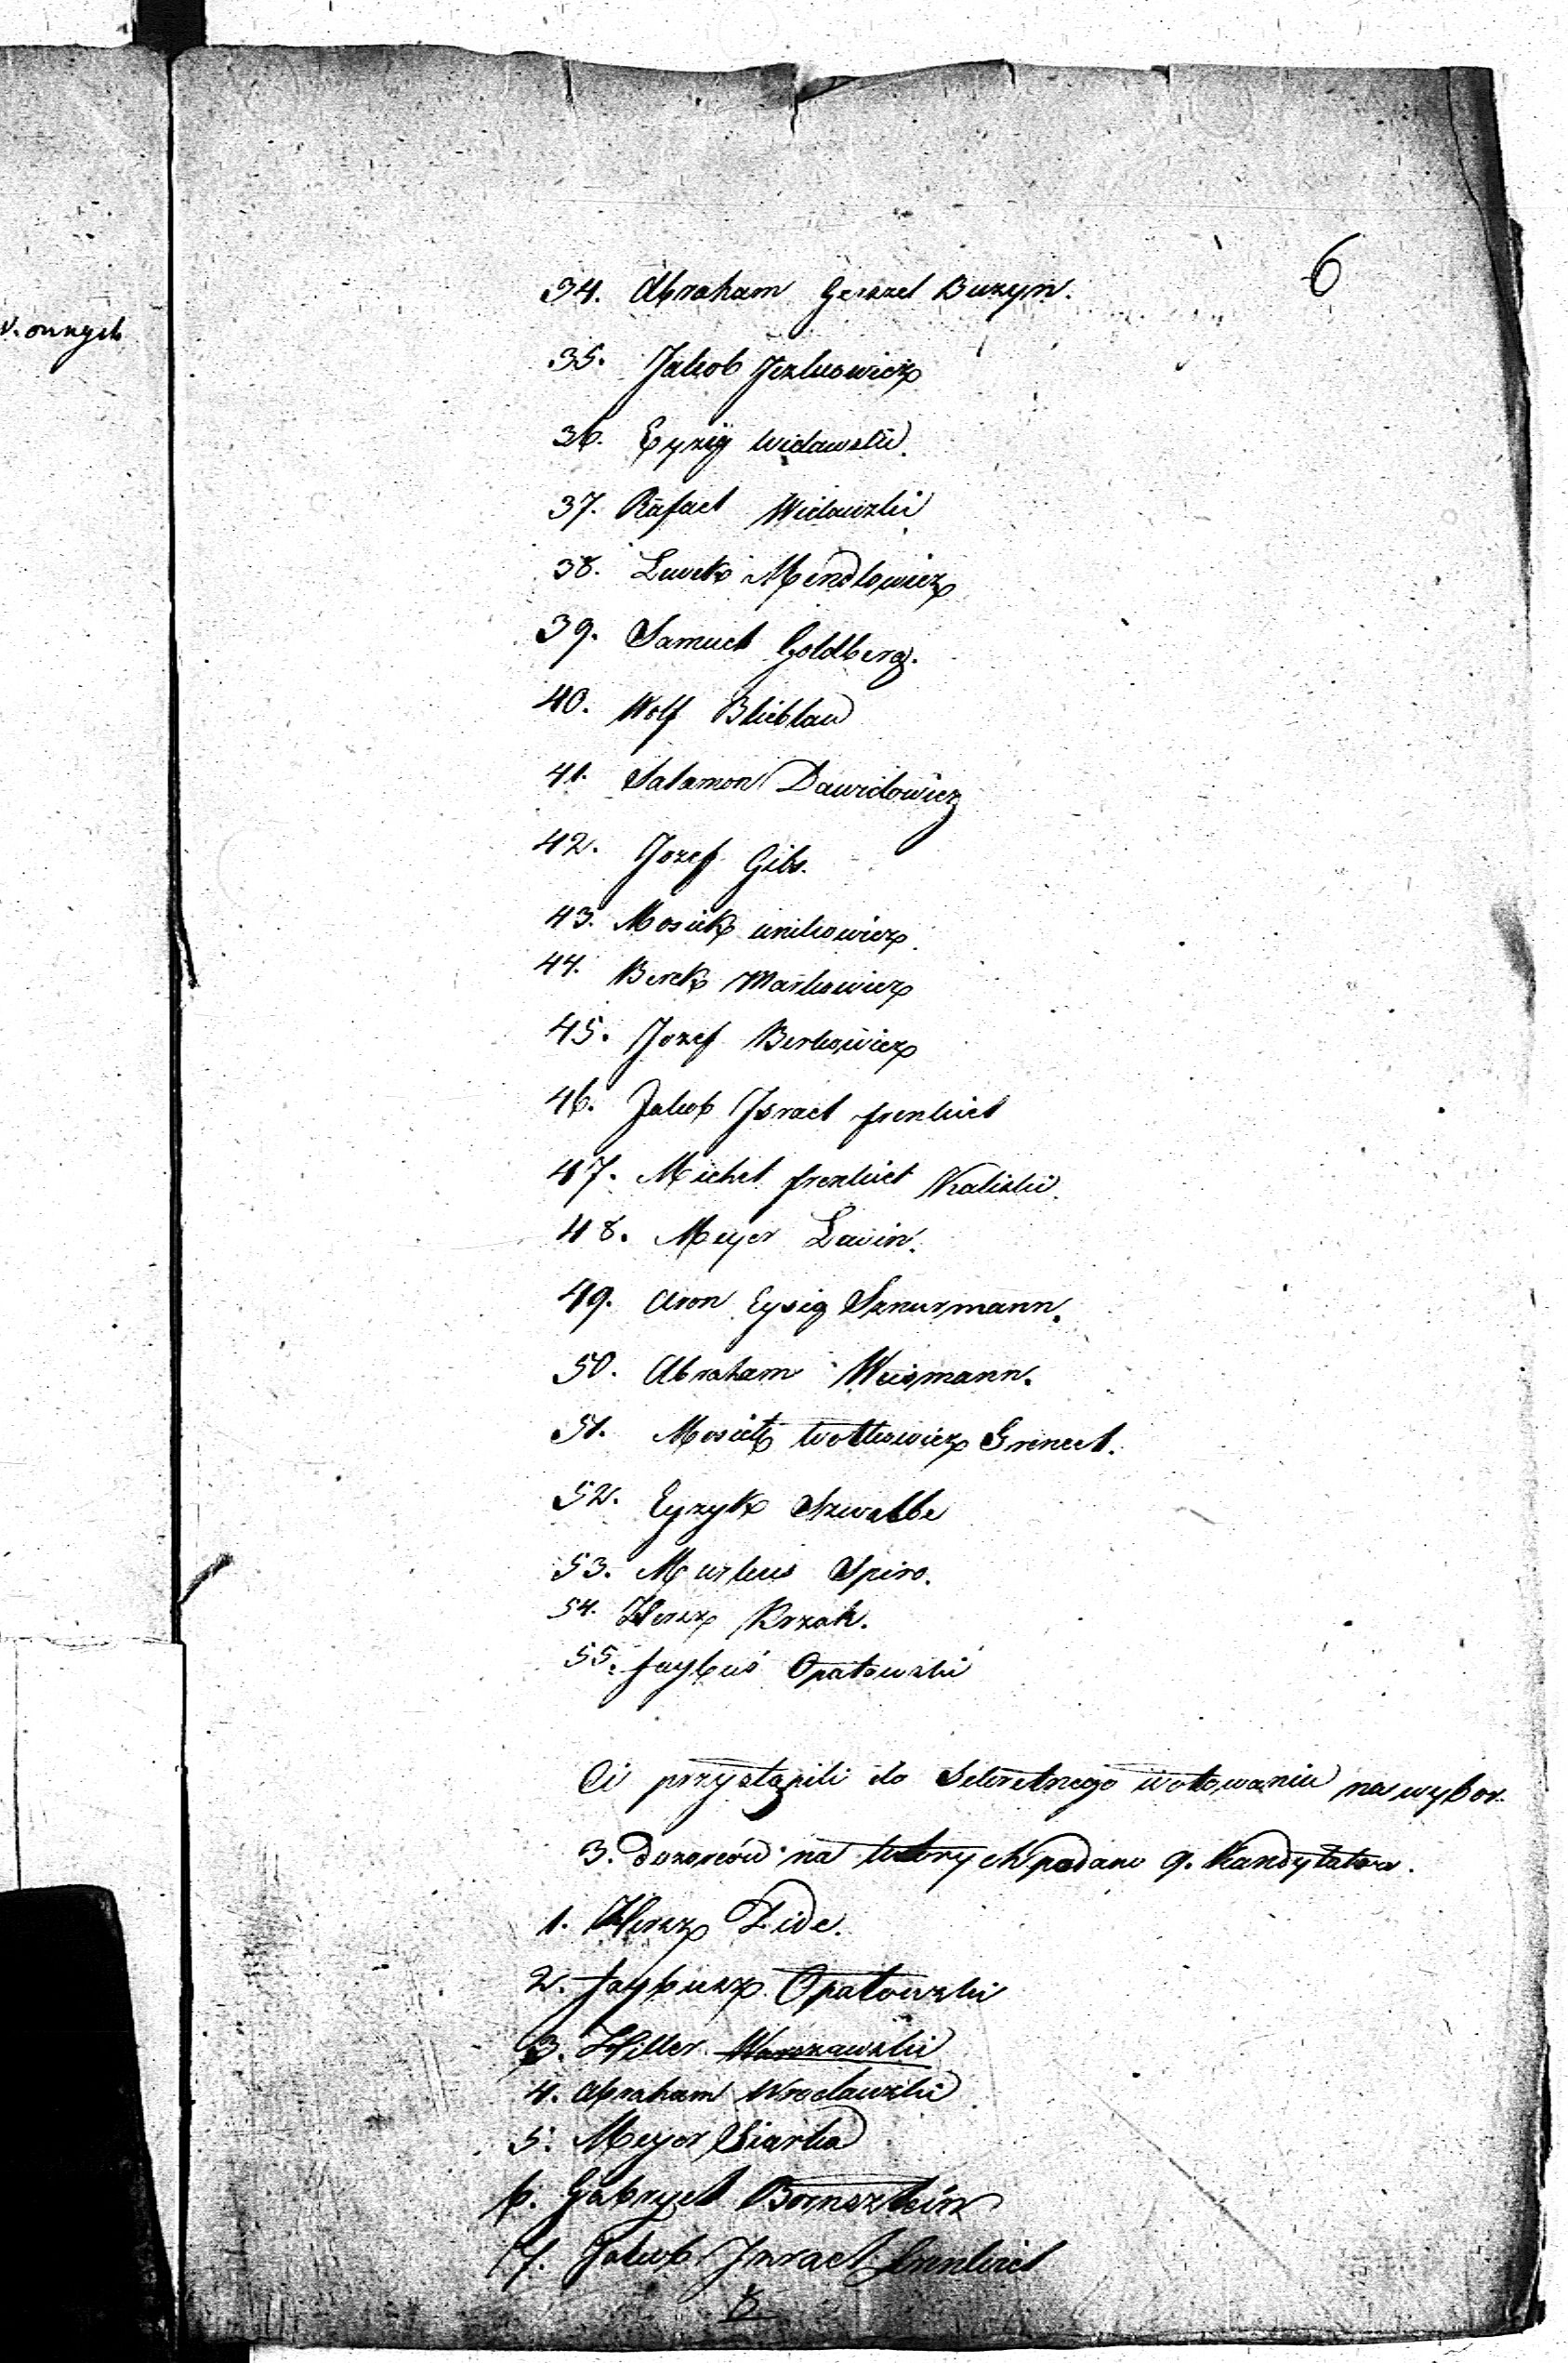 6
v. onnych
34. Abraham Gerszel Buzyn.
35. Jakob Jezkowicz
36. Eyzig Widawski.
37. Rafael Widawski
38. Lewek Mendlowicz
39. Samuel Goldberg.
40. Wolf Blieblau
41. Salamon Dawidowicz
42. Jozef Gibs.
43. Mosiek unikowicz
44. Berek Markowicz
45. Jozef Berkowicz
46. Jakob Israel frenkiel
47. Michel frenkiel Kaliski.
48. Meyer Lewin.
49. Aron Eysig Sznurmann.
50. Abraham Weismann.
51. Mosiek Wolkowicz Grineel.
52. Eyzyk Szwalbe
53. Markus Spiro.
54. Hersz Krzak.
55. faybuś Opatowski
Ci przystąpili do Sekretnego wotowania na wybor
3. dozorców na ktorych podano 9. Kandytatow.
1. Hersz Zide.
2. faybusz Opatowski
3. Hiller Warszawski
4. Abraham Wroclawski
5. Meyer Siarka
6. Gabryel Bornsztein
7. Jakob Israel frenkiel
8